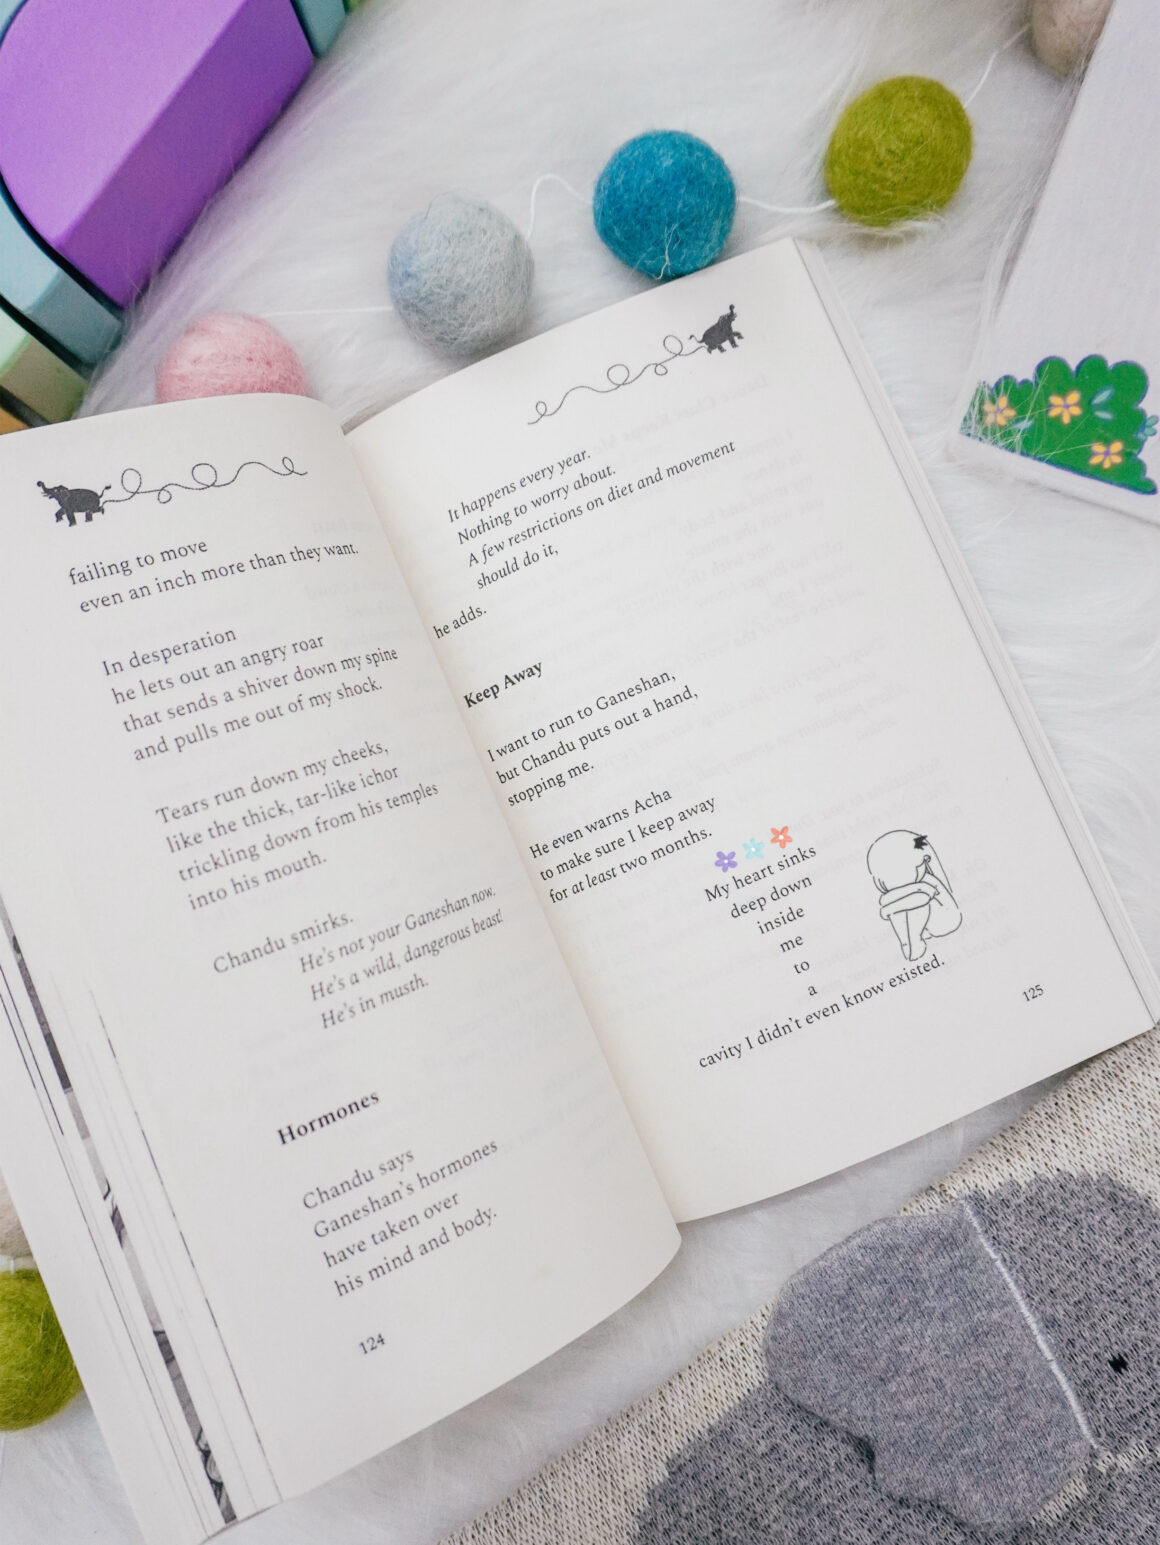 failing to move
even an inch more than they want.
In desperation
he lets out an angry roar
that sends a shiver down my spine
and pulls me out of my shock.
Tears run down my cheeks,
like the thick, tar-like ichor
trickling down from his temples
into his mouth.
Chandu smirks.
He's not your Ganeshan now.
He's a wild, dangerous beast!
He's in musth.
Hormones
Chandu says
Ganeshan's hormones
have taken over
his mind and body.
124
It happens every year.
Nothing to worry about.
A few restrictions on diet and movement
should do it,
he adds.
Keep Away
I want to run to Ganeshan,
but Chandu puts out a hand,
stopping me.
He even warns Acha
to make sure I keep away
for at least two months.
My heart sinks
deep down
inside
me
to
a
cavity I didn't even know existed.
125